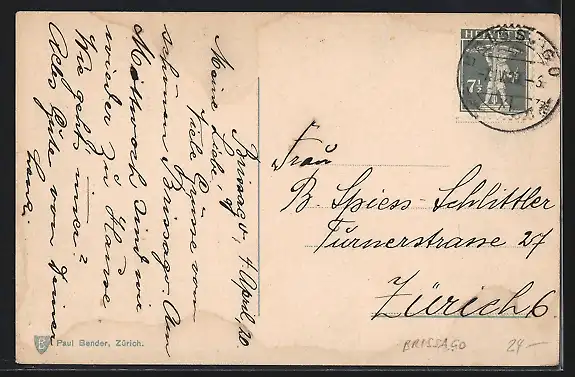 Brissago, 4 April, 20
Meine Liebe,
Viele Grüsse vom
schönen Brissago. Am
Mittwoch sind wir
wieder zu Hause
Wie geht's immer?
Alles Gute von Deiner
HELVETIA
7½
BRISSAGO
Frau
B. Spiess-Schlittler
Turnerstrasse 27
Zürich 6
Paul Bender, Zürich.
BRISSAGO
24-